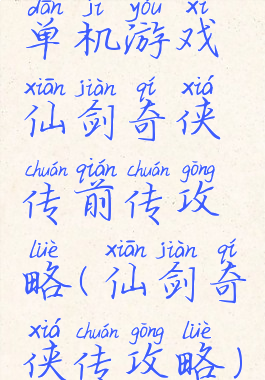 dān jī yóu xì
单机游戏
xiān jiàn qí xiá
仙剑奇侠
chuán qián chuán gōng
传前传攻
lüè xiān jiàn qí
略(仙剑奇
xiá chuán gōng lüè
侠传攻略)